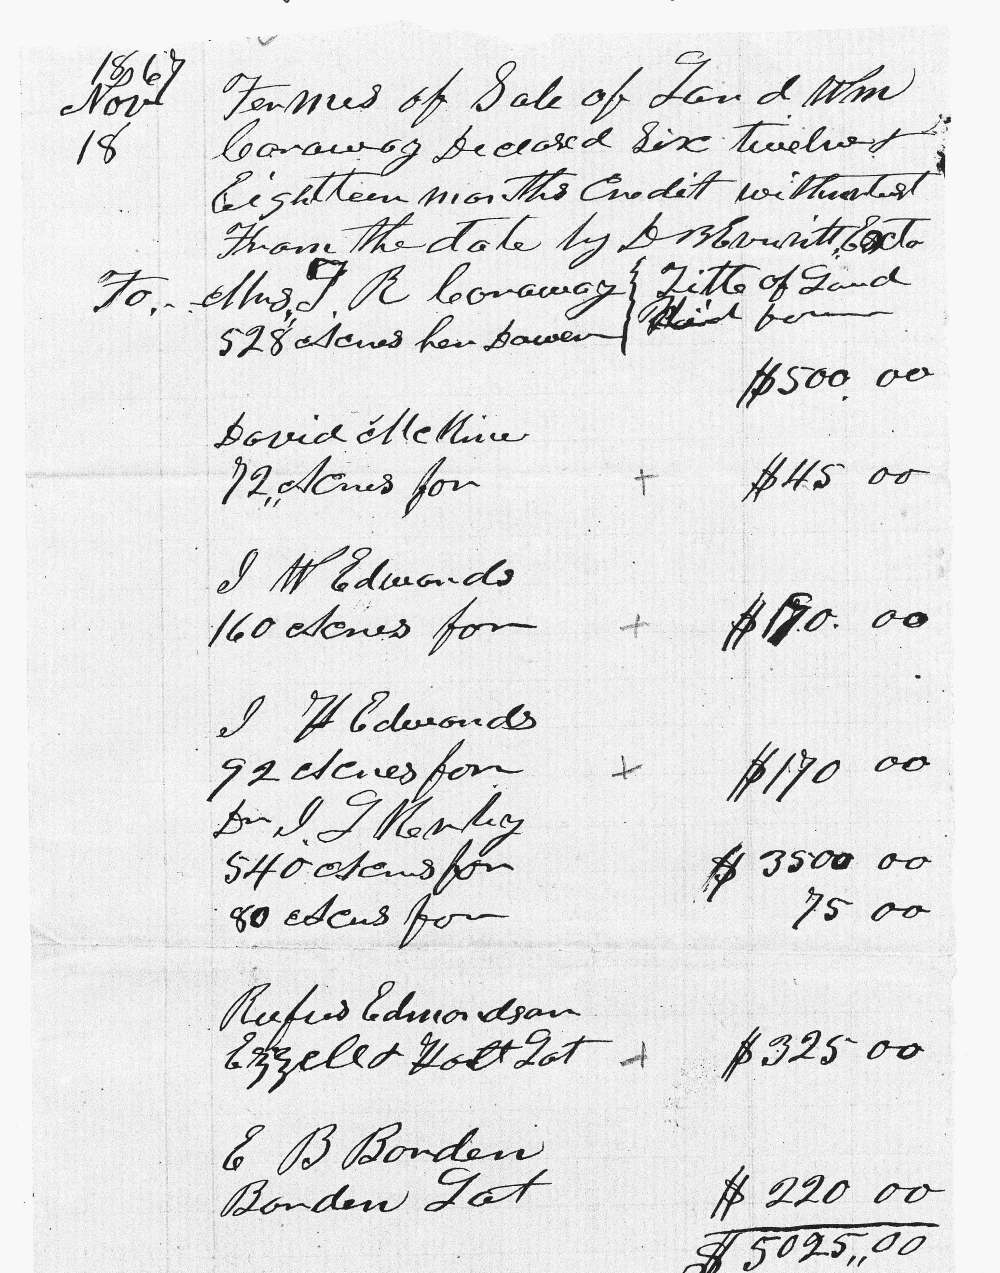 1867
Nov Termes of Sale of Land Wm
18 Caraway Deceased Six twelve &
Eighteen months Credit with
From the date by D B Everitt Exctr
To Mrs. T. R Caraway } Title of Land
528 Acres her Dower } for
$500. 00
David McKine
72,, Acres for + $45 00
I W Edwards
160 Acres for + $190. 00
I H Edwards
92 Acres for + $170 00
Dr I G
540 Acres for $ 3500 00
80 Acres for 75 00
Rufus Edmondson
Ezzell & Holt Lot + $325 00
E B Borden
Borden Lot $ 220 00
$ 5025,,00